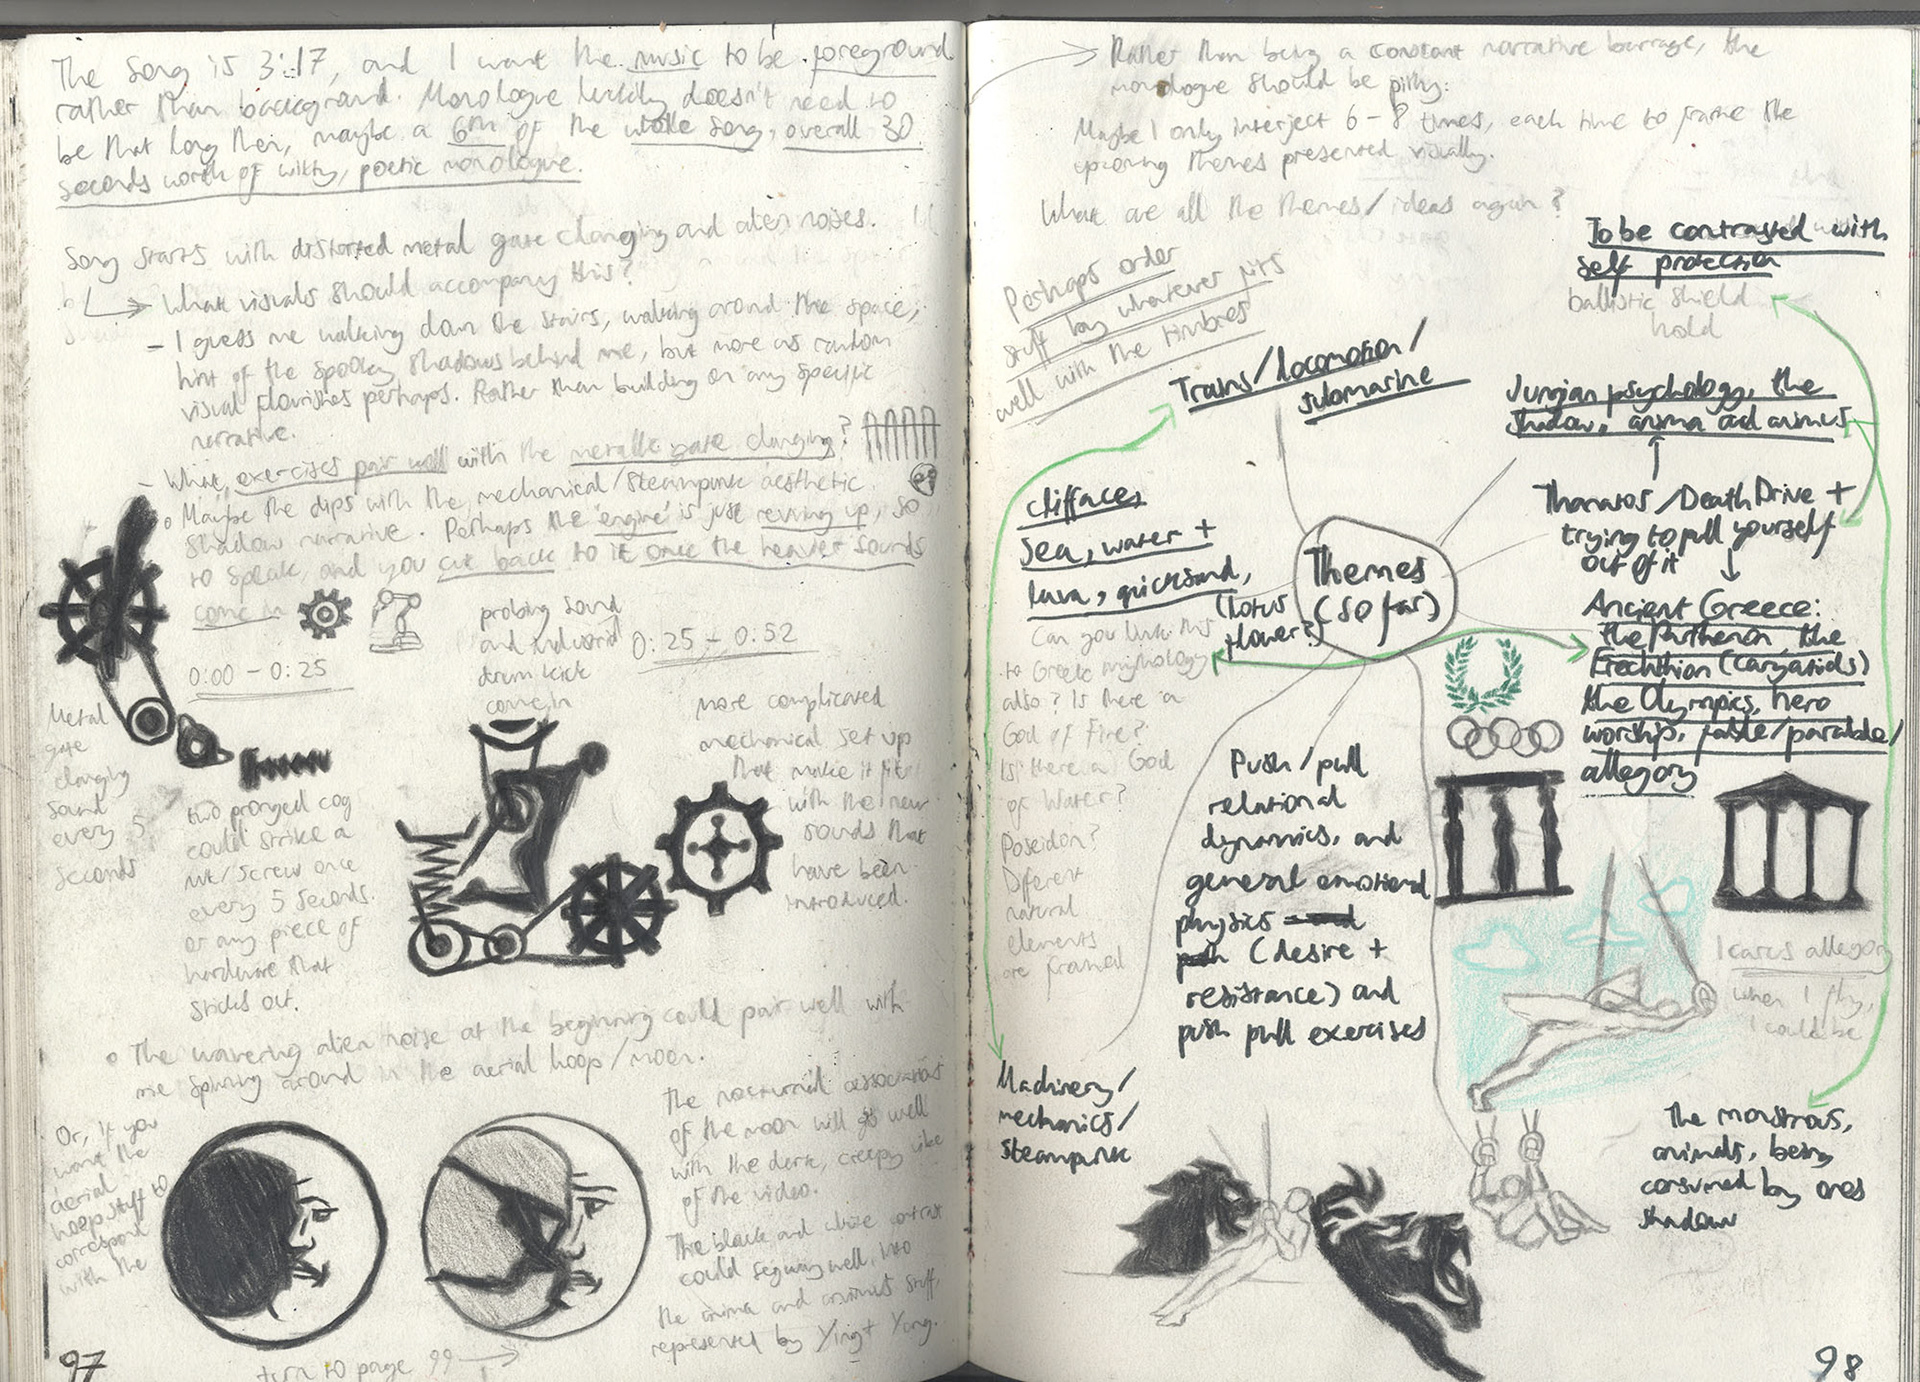 The song is 3:17, and I want the music to be foreground
rather than background. Monologue luckily doesn't need to
be that long then, maybe a 6th of the whole song, overall 30
seconds worth of witty, poetic monologue.
Song starts with distorted metal gate clanging and alien noises.
What visuals should accompany this?
- I guess me walking down the stairs, walking around the space,
hint of the spooky shadows behind me, but more as random
visual flourishes perhaps. Rather than building on any specific
narrative.
- What exercises pair well with the metallic gate clanging?
Maybe the dips with the mechanical/steampunk aesthetic
shadow narrative. Perhaps the 'engine' is just revving up, so
to speak, and you cut back to it once the heavier sounds
come in
0:00 - 0:25
probing sound
and industrial
drum kick
come in
0:25 - 0:52
Metal
gate
clanging
sound
every 5
seconds
two pronged cog
could strike a
nut/screw once
every 5 seconds.
or any piece of
hardware that
sticks out.
more complicated
mechanical set up
that make it fit
with the new
sounds that
have been
introduced.
The wavering alien noise at the beginning could pair well with
me spinning around in the aerial hoop/moon.
Or, if you
want the
aerial
hoop stuff to
correspond
with the
the nocturnal associations
of the moon will go well
with the dark, creepy vibe
of the video.
The black and white contrast
could segway well, into
the anima and animus stuff,
represented by Ying + Yang.
turn to page 99
97
Rather than being a constant narrative barrage, the
monologue should be pithy:
Maybe I only interject 6-8 times, each time to frame the
upcoming themes presented visually.
What are all the themes/ideas again?
Perhaps order
stuff by whatever fits
well with the timbres
To be contrasted with
self protection
ballistic shield
hold
Trains/locomotion/
submarine
Jungian psychology, the
Shadow, anima and animus
Thanatos/Death Drive +
trying to pull yourself
out of it
cliffaces
Sea, water +
lava, quicksand,
(lotus
flower?)
Themes
(so far)
Can you link this
to Greek mythology
also? Is there a
God of Fire?
Is there a God
of Water?
Poseidon?
Different
natural
elements
are framed
Ancient Greece:
the Parthenon, the
Erechthion (caryatids)
the Olympics, hero
worship, fable/parable/
allegory
Push/pull
relational
dynamics, and
general emotional
physics
(desire +
resistance) and
push pull exercises
Icarus allegory
when I fly,
I could be
Machinery/
mechanics/
steampunk
The monstrous,
animals, being
consumed by ones
shadow
98